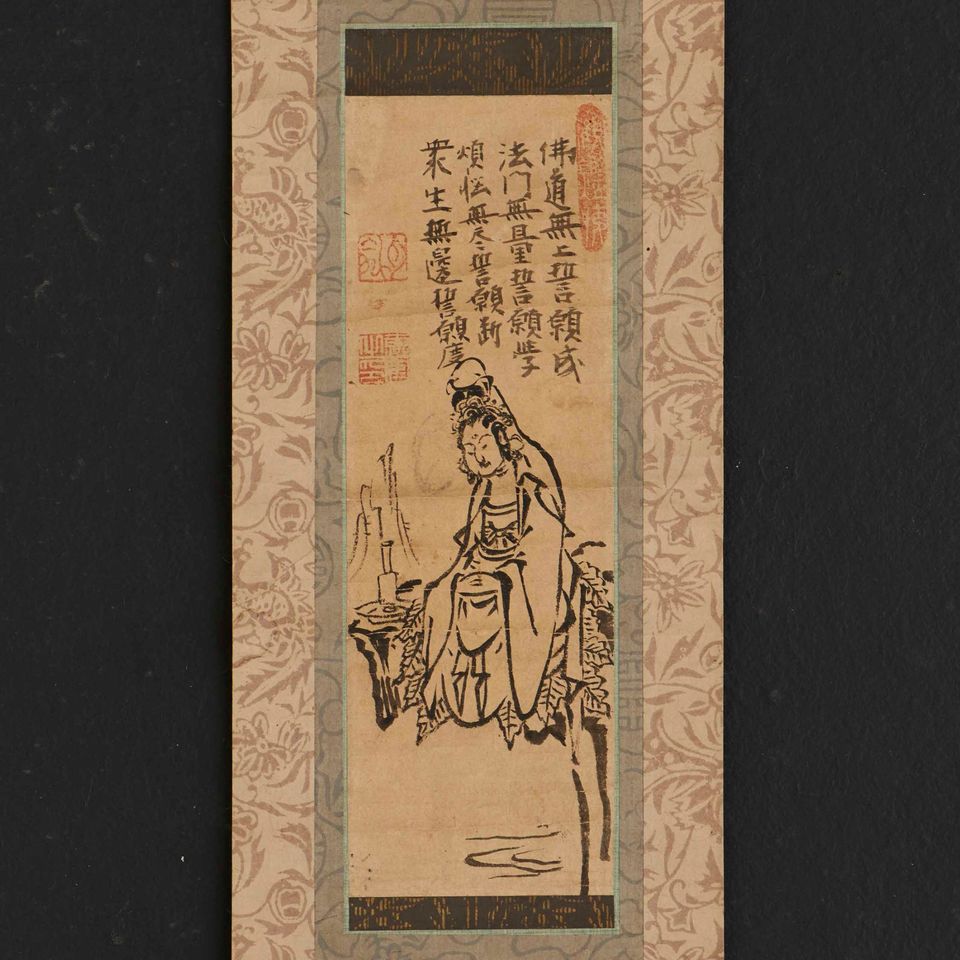 衆生無邊誓願度
煩悩無尽誓願断
法門無量誓願学
佛道無上誓願成